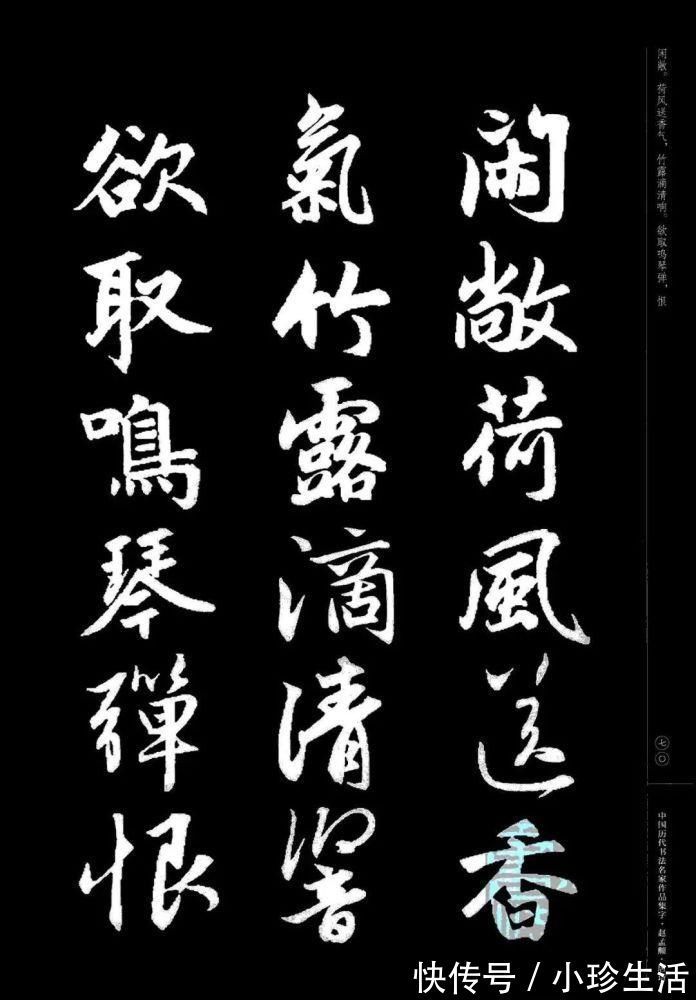 闲敞。荷风送香气，竹露滴清响。欲取鸣琴弹，恨
閑敞荷風送香
氣竹露滴清響
欲取鳴琴彈恨
七〇
中国历代书法名家作品集字·赵孟頫
快传号／小珍生活